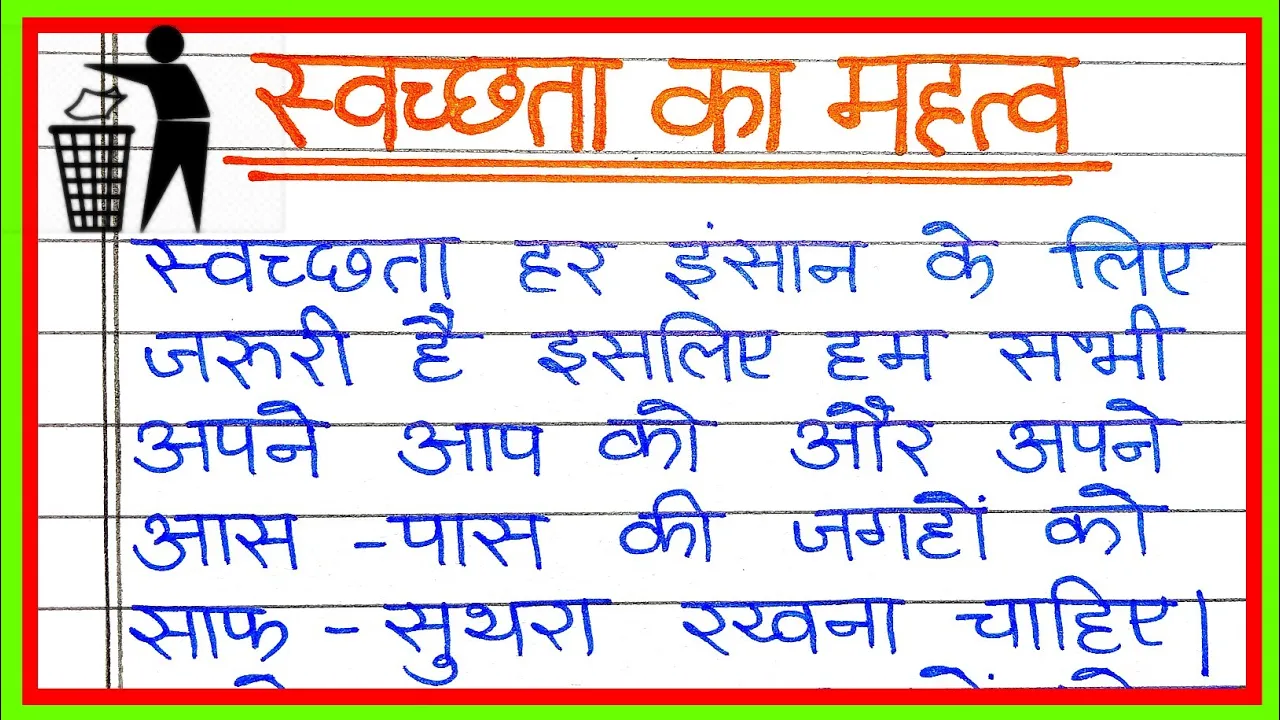 स्वच्छता का महत्व
स्वच्छता हर इंसान के लिए
जरुरी है इसलिए हम सभी
अपने आप को और अपने
आस -पास की जगहों को
साफ - सुथरा रखना चाहिए।